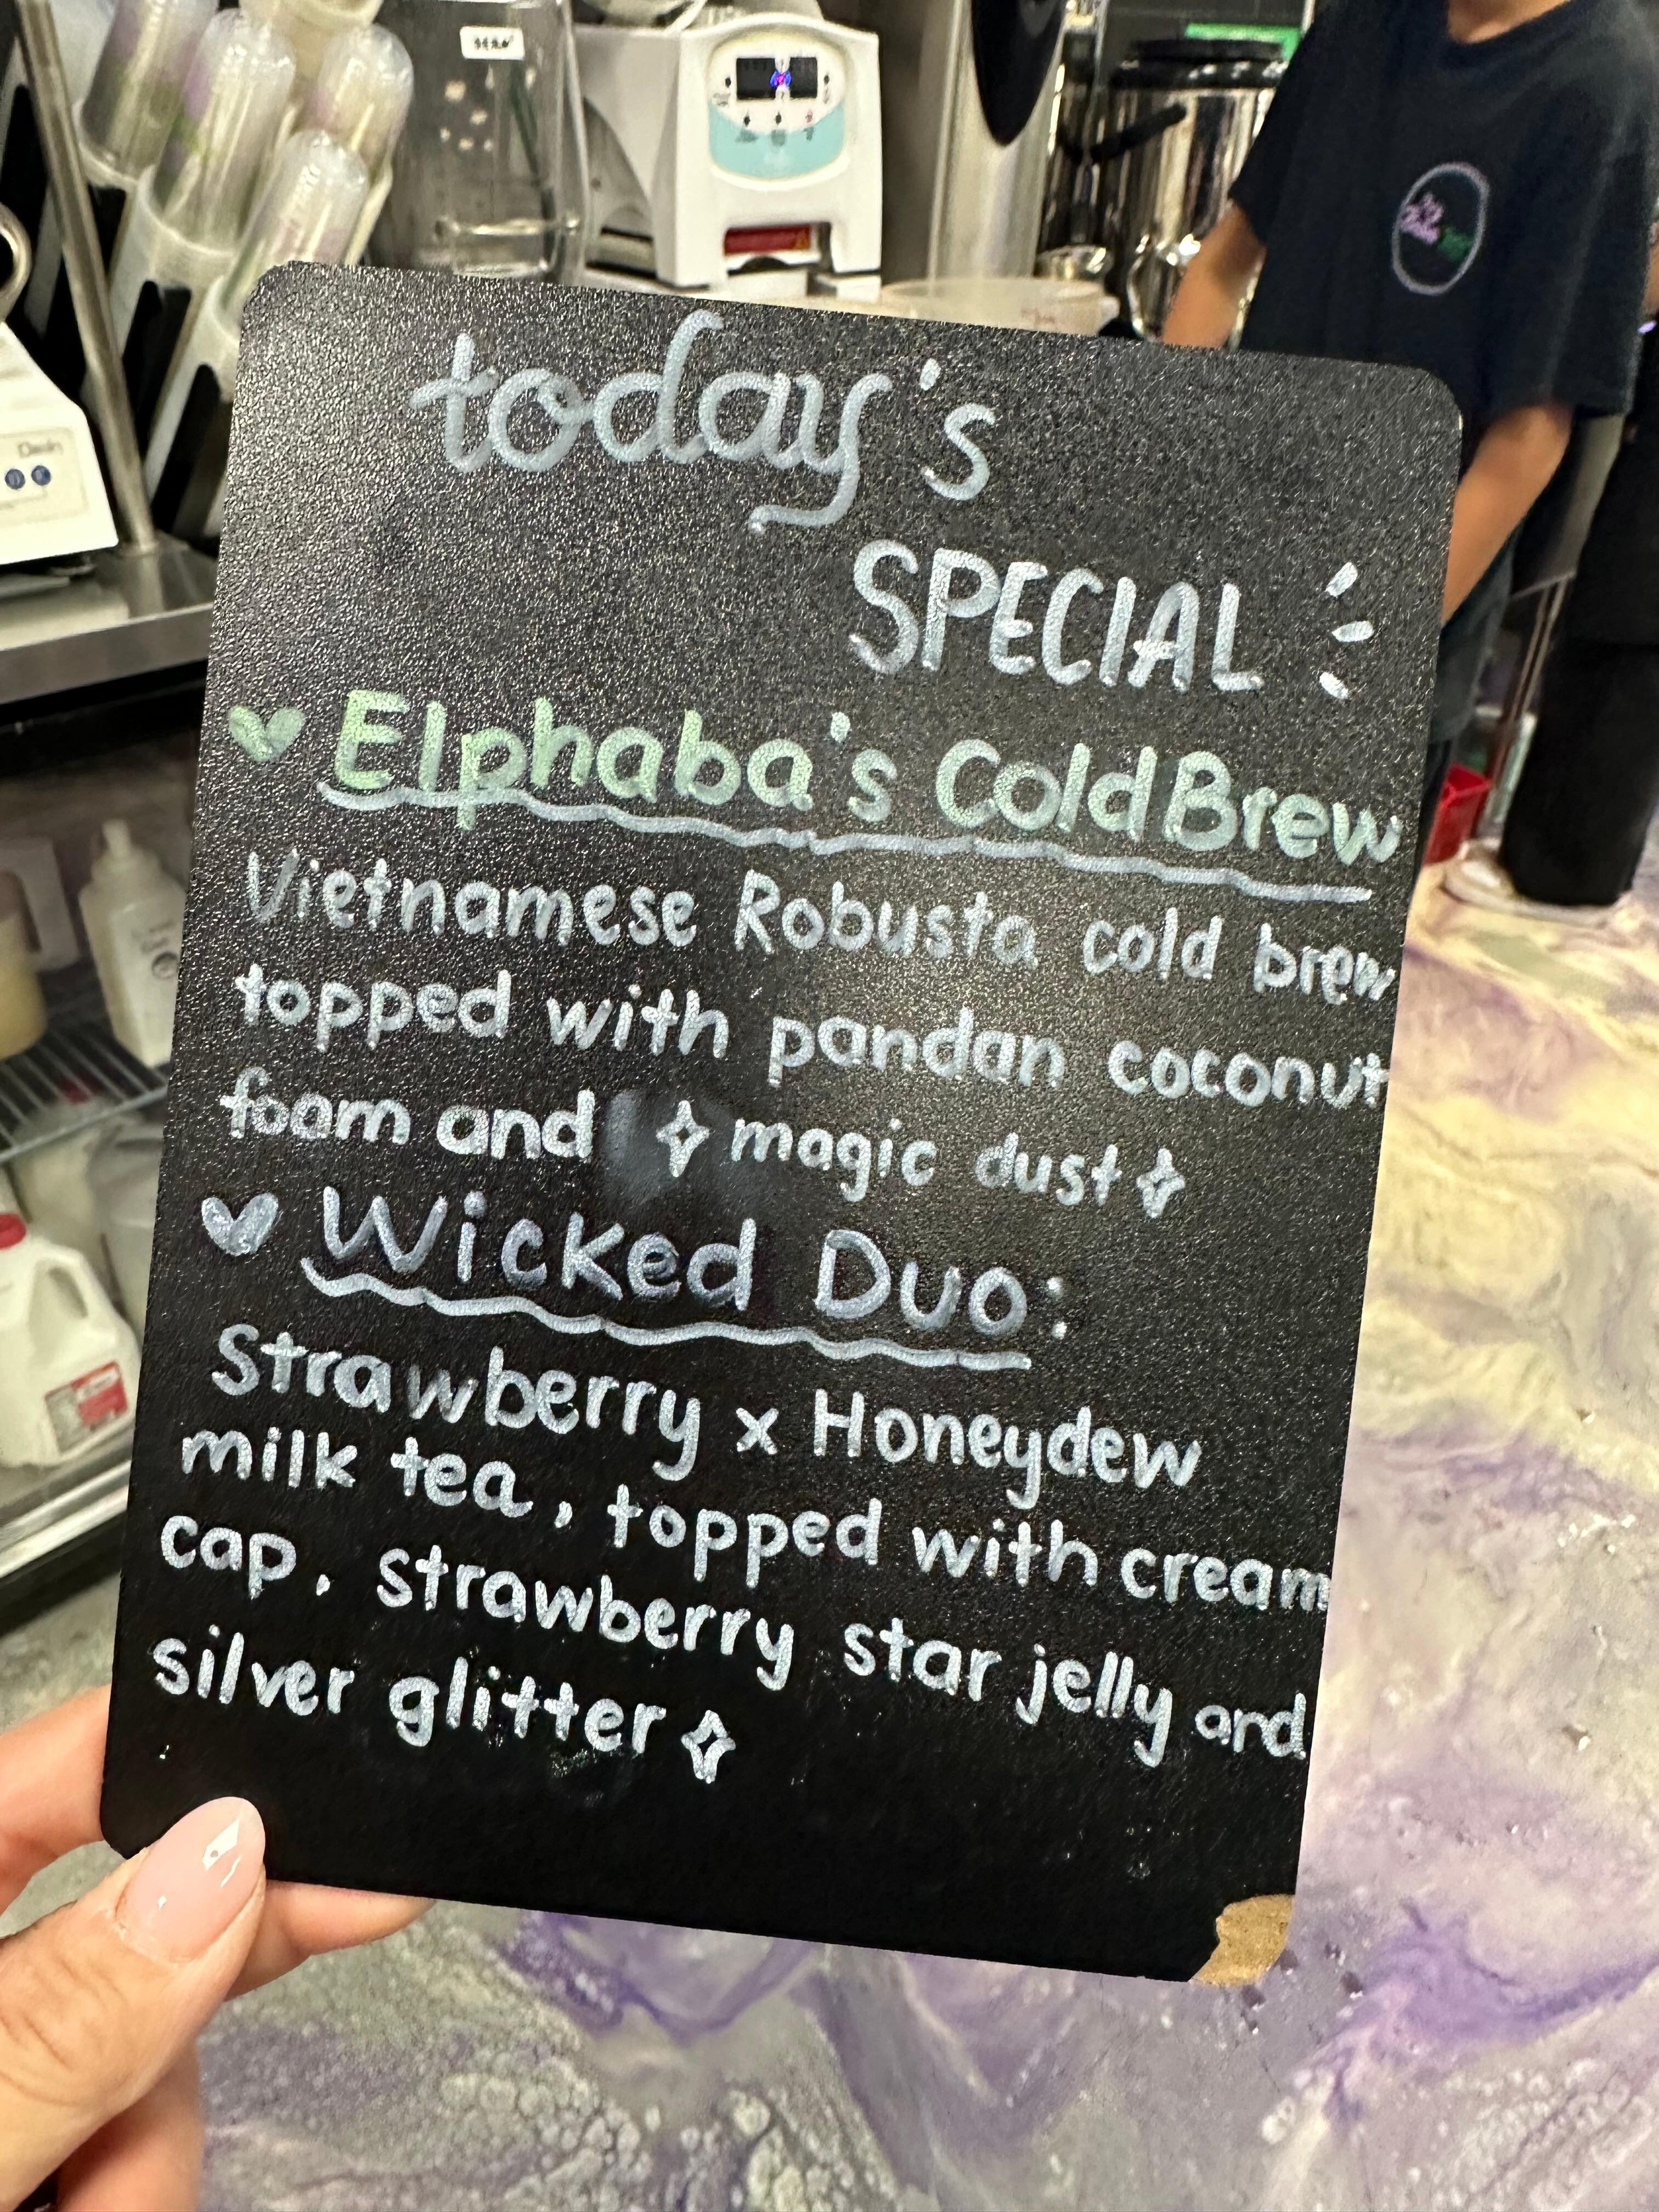 today's
SPECIAL
Elphaba's Cold Brew
Vietnamese Robusta cold brew
topped with pandan coconut
foam and ✧ magic dust ✧
Wicked Duo:
Strawberry x Honeydew
milk tea, topped with cream
cap, strawberry star jelly and
silver glitter ✧